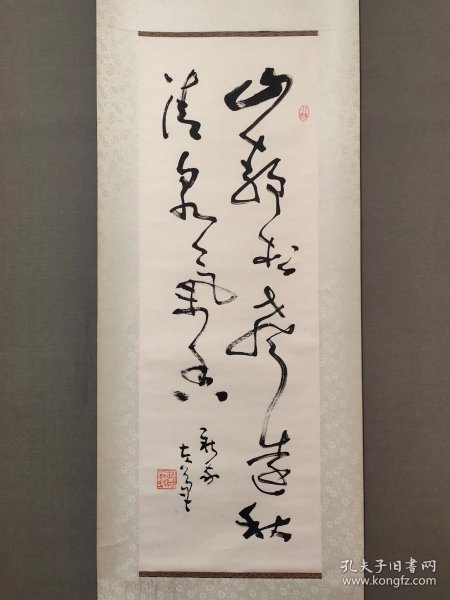 山静松声远秋
清泉气香
孔夫子旧书网
www.kongfz.com